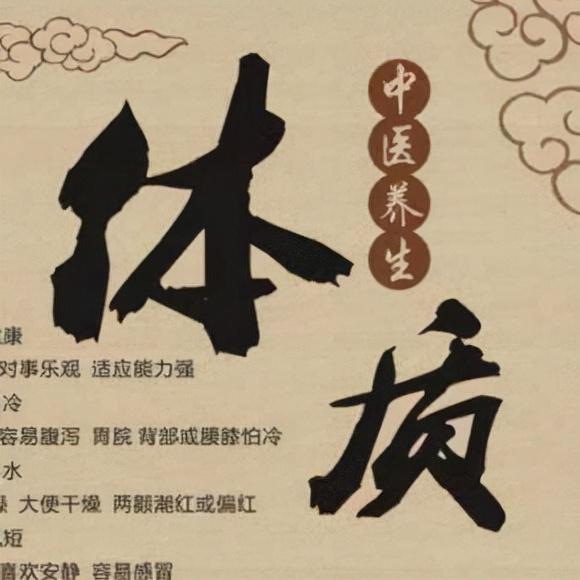 体质
中医养生
康
对事乐观 适应能力强
冷
容易腹泻 胃脘 背部或腰膝怕冷
水
大便干燥 两颧潮红或偏红
短
喜欢安静 容易感冒